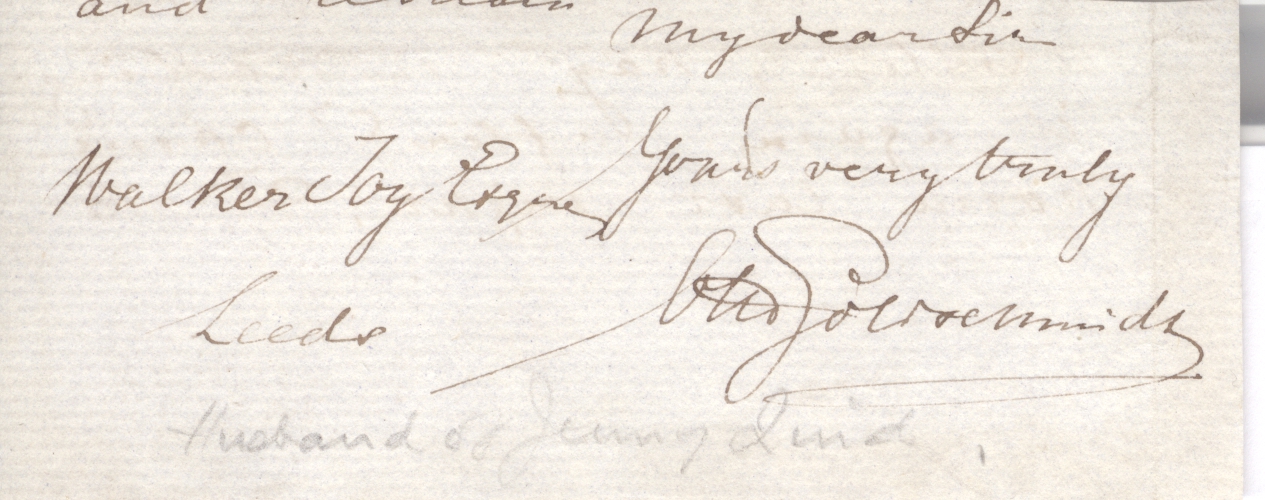 and remain
My dear Sir
Yours very truly
Walker Joy Esqre
Otto Goldschmidt
Leeds
Husband of Jenny Lind.